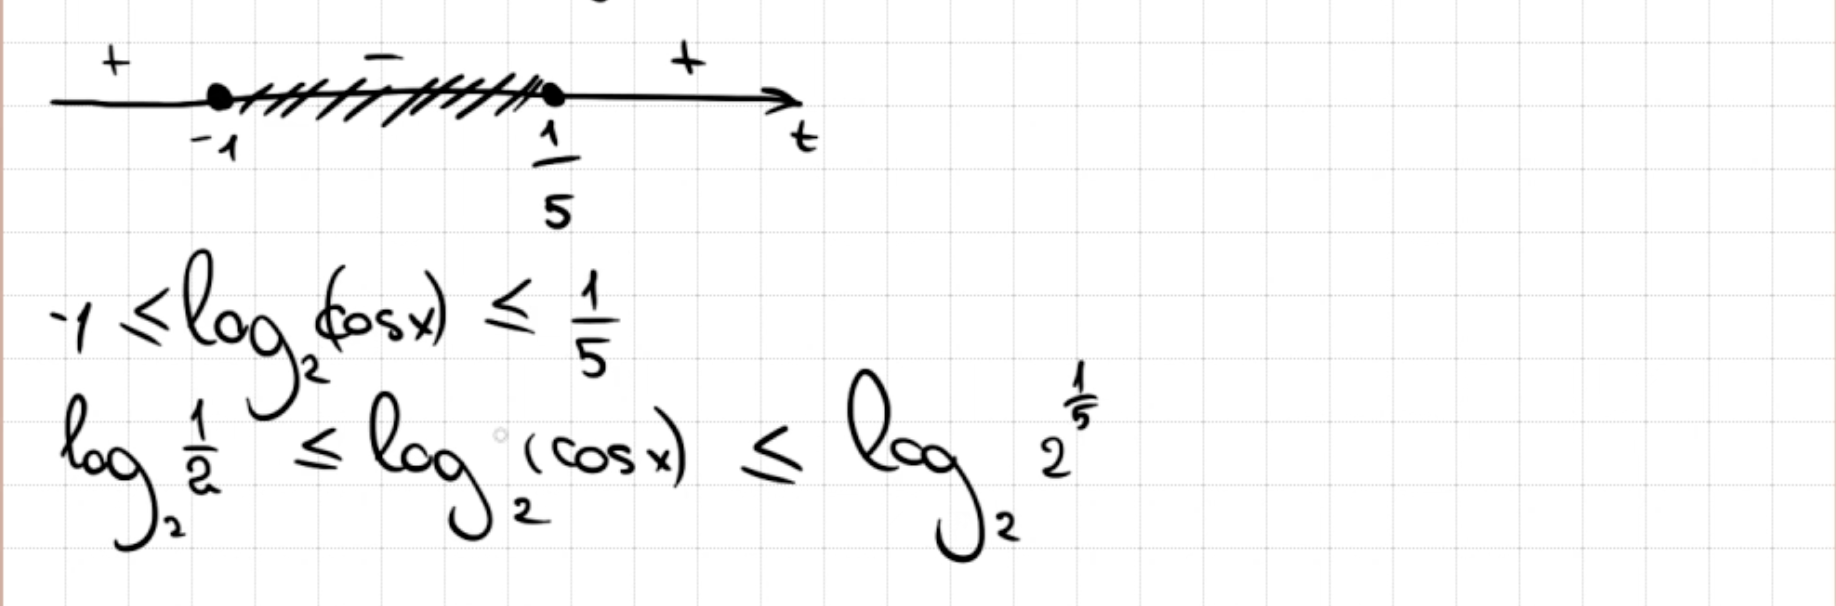 + − +
-1 1/5 t
-1 ≤ log₂(cosx) ≤ 1/5
log₂ 1/2 ≤ log₂ (cosx) ≤ log₂ 2^(1/5)